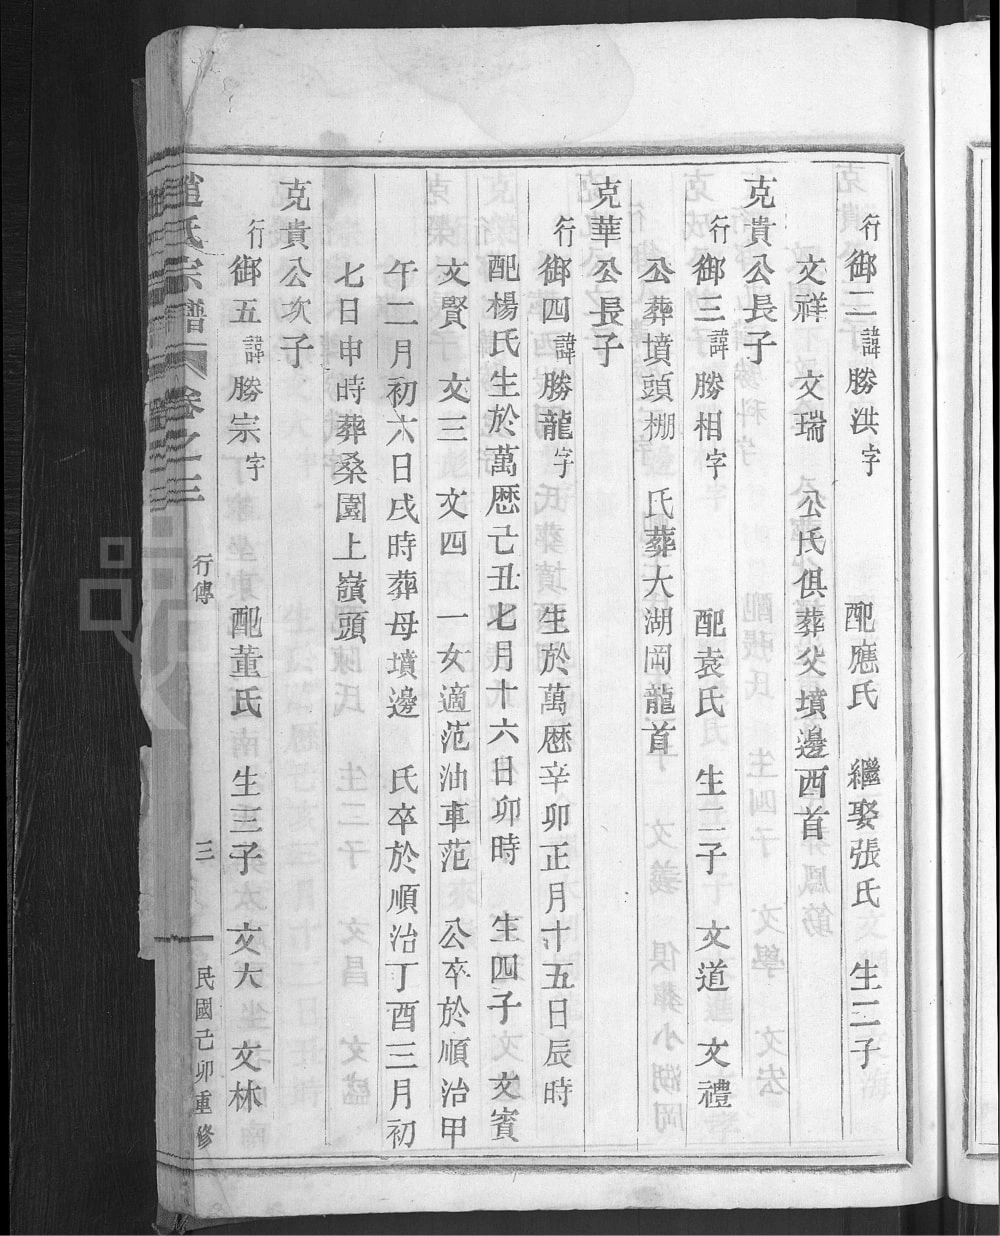 行御二諱勝洪字 配應氏 繼娶張氏 生二子
文祥 文瑞 公氏俱葬父墳邊西首
克貴公長子
行御三諱勝相字 配袁氏 生二子 文道 文禮
公葬墳頭棚 氏葬大湖岡龍首
克華公長子
行御四諱勝龍字 生於萬歷辛卯正月十五日辰時
配楊氏生於萬歷己丑七月十六日卯時 生四子 文賓
文賢 文三 文四 一女適范油車范 公卒於順治甲
午二月初六日戌時葬母墳邊 氏卒於順治丁酉三月初
七日申時葬桑園上嶺頭
克貴公次子
行御五諱勝宗字 配董氏 生三子 文大 文林
趙氏宗譜 卷之三 行傳 三 民國己卯重修